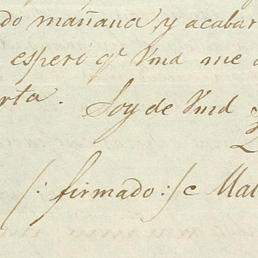 do mañana, y acabar
esperi qe Vmd me
rta. Soy de Vmd
/: firmado :/ c Mat